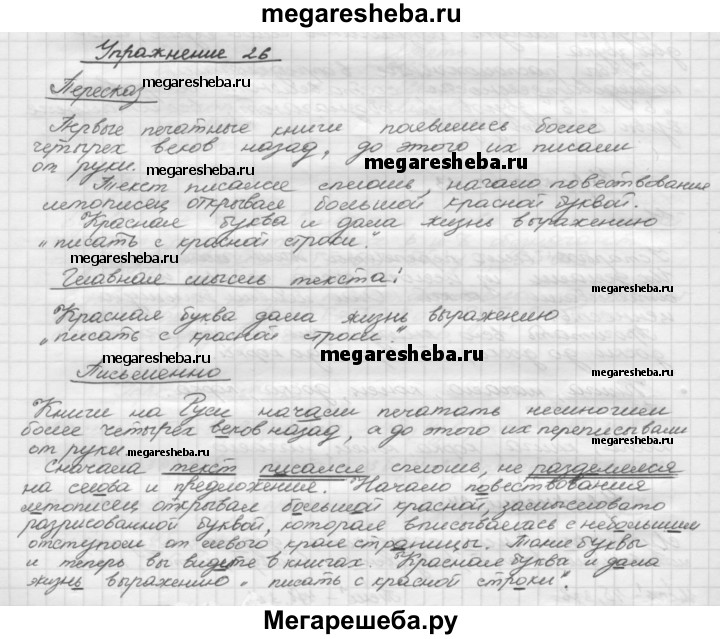 megaresheba.ru
Упражнение 26
Пересказ megaresheba.ru
Первые печатные книги появились более
четырех веков назад, до этого их писали
от руки. megaresheba.ru megaresheba.ru
Текст писался сплошь, начало повествования
летописец открывал большой красной буквой.
Красная буква и дала жизнь выражению
„писать с красной строки".
megaresheba.ru megaresheba.ru
Главная мысль текста:
megaresheba.ru
Красная буква дала жизнь выражению
„писать с красной строки."
megaresheba.ru megaresheba.ru
Письменно
Книги на Руси начали печатать несиногием
более четырех веков назад, а до этого их переписывали
от руки. megaresheba.ru megaresheba.ru
Сначала текст писался сплошь, не разделялся
на слова и предложения. Начало повествования
летописец открывал большой красной, замысловато
разрисованной буквой, которая вписывалась с небольшим
отступом от левого края страницы. Такие буквы
и теперь вы видете в книгах. Красная буква и дала
жизнь выражению „писать с красной строки".
Мегарешеба.ру